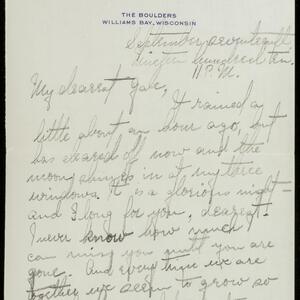 THE BOULDERS
WILLIAMS BAY, WISCONSIN
September seventeenth
hundred ten.
11 P.M.
My dearest Gale,
It rained a
little about an hour ago, but
has cleared off now and the
moon shines in at my three
windows. It is a glorious night—
and I long for you, dearest.
I never know how much I
can miss you until you are
gone. And every time we are
together we seem to grow so